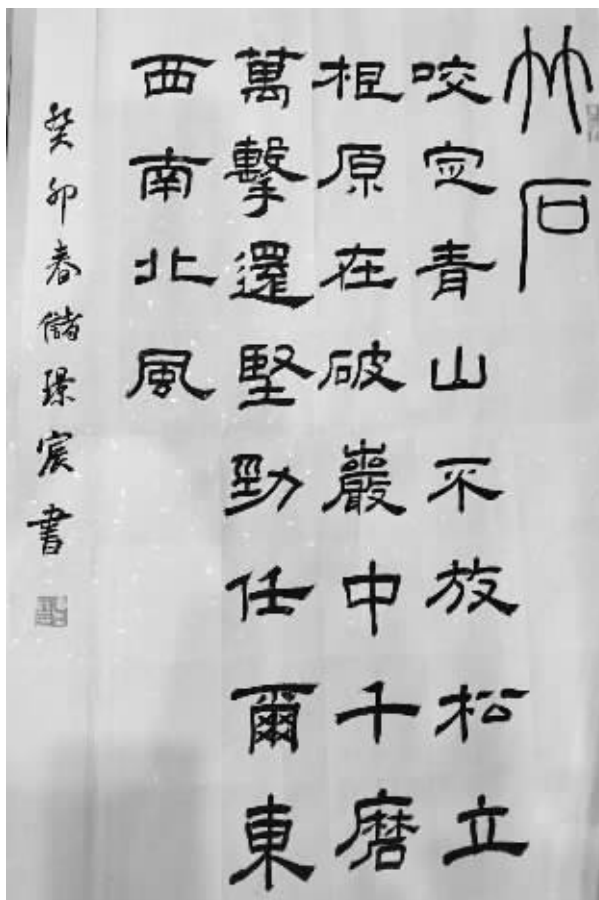 竹石
咬定青山不放松立
根原在破巖中千磨
萬擊還堅勁任爾東
西南北風
癸卯春儲璟宸書